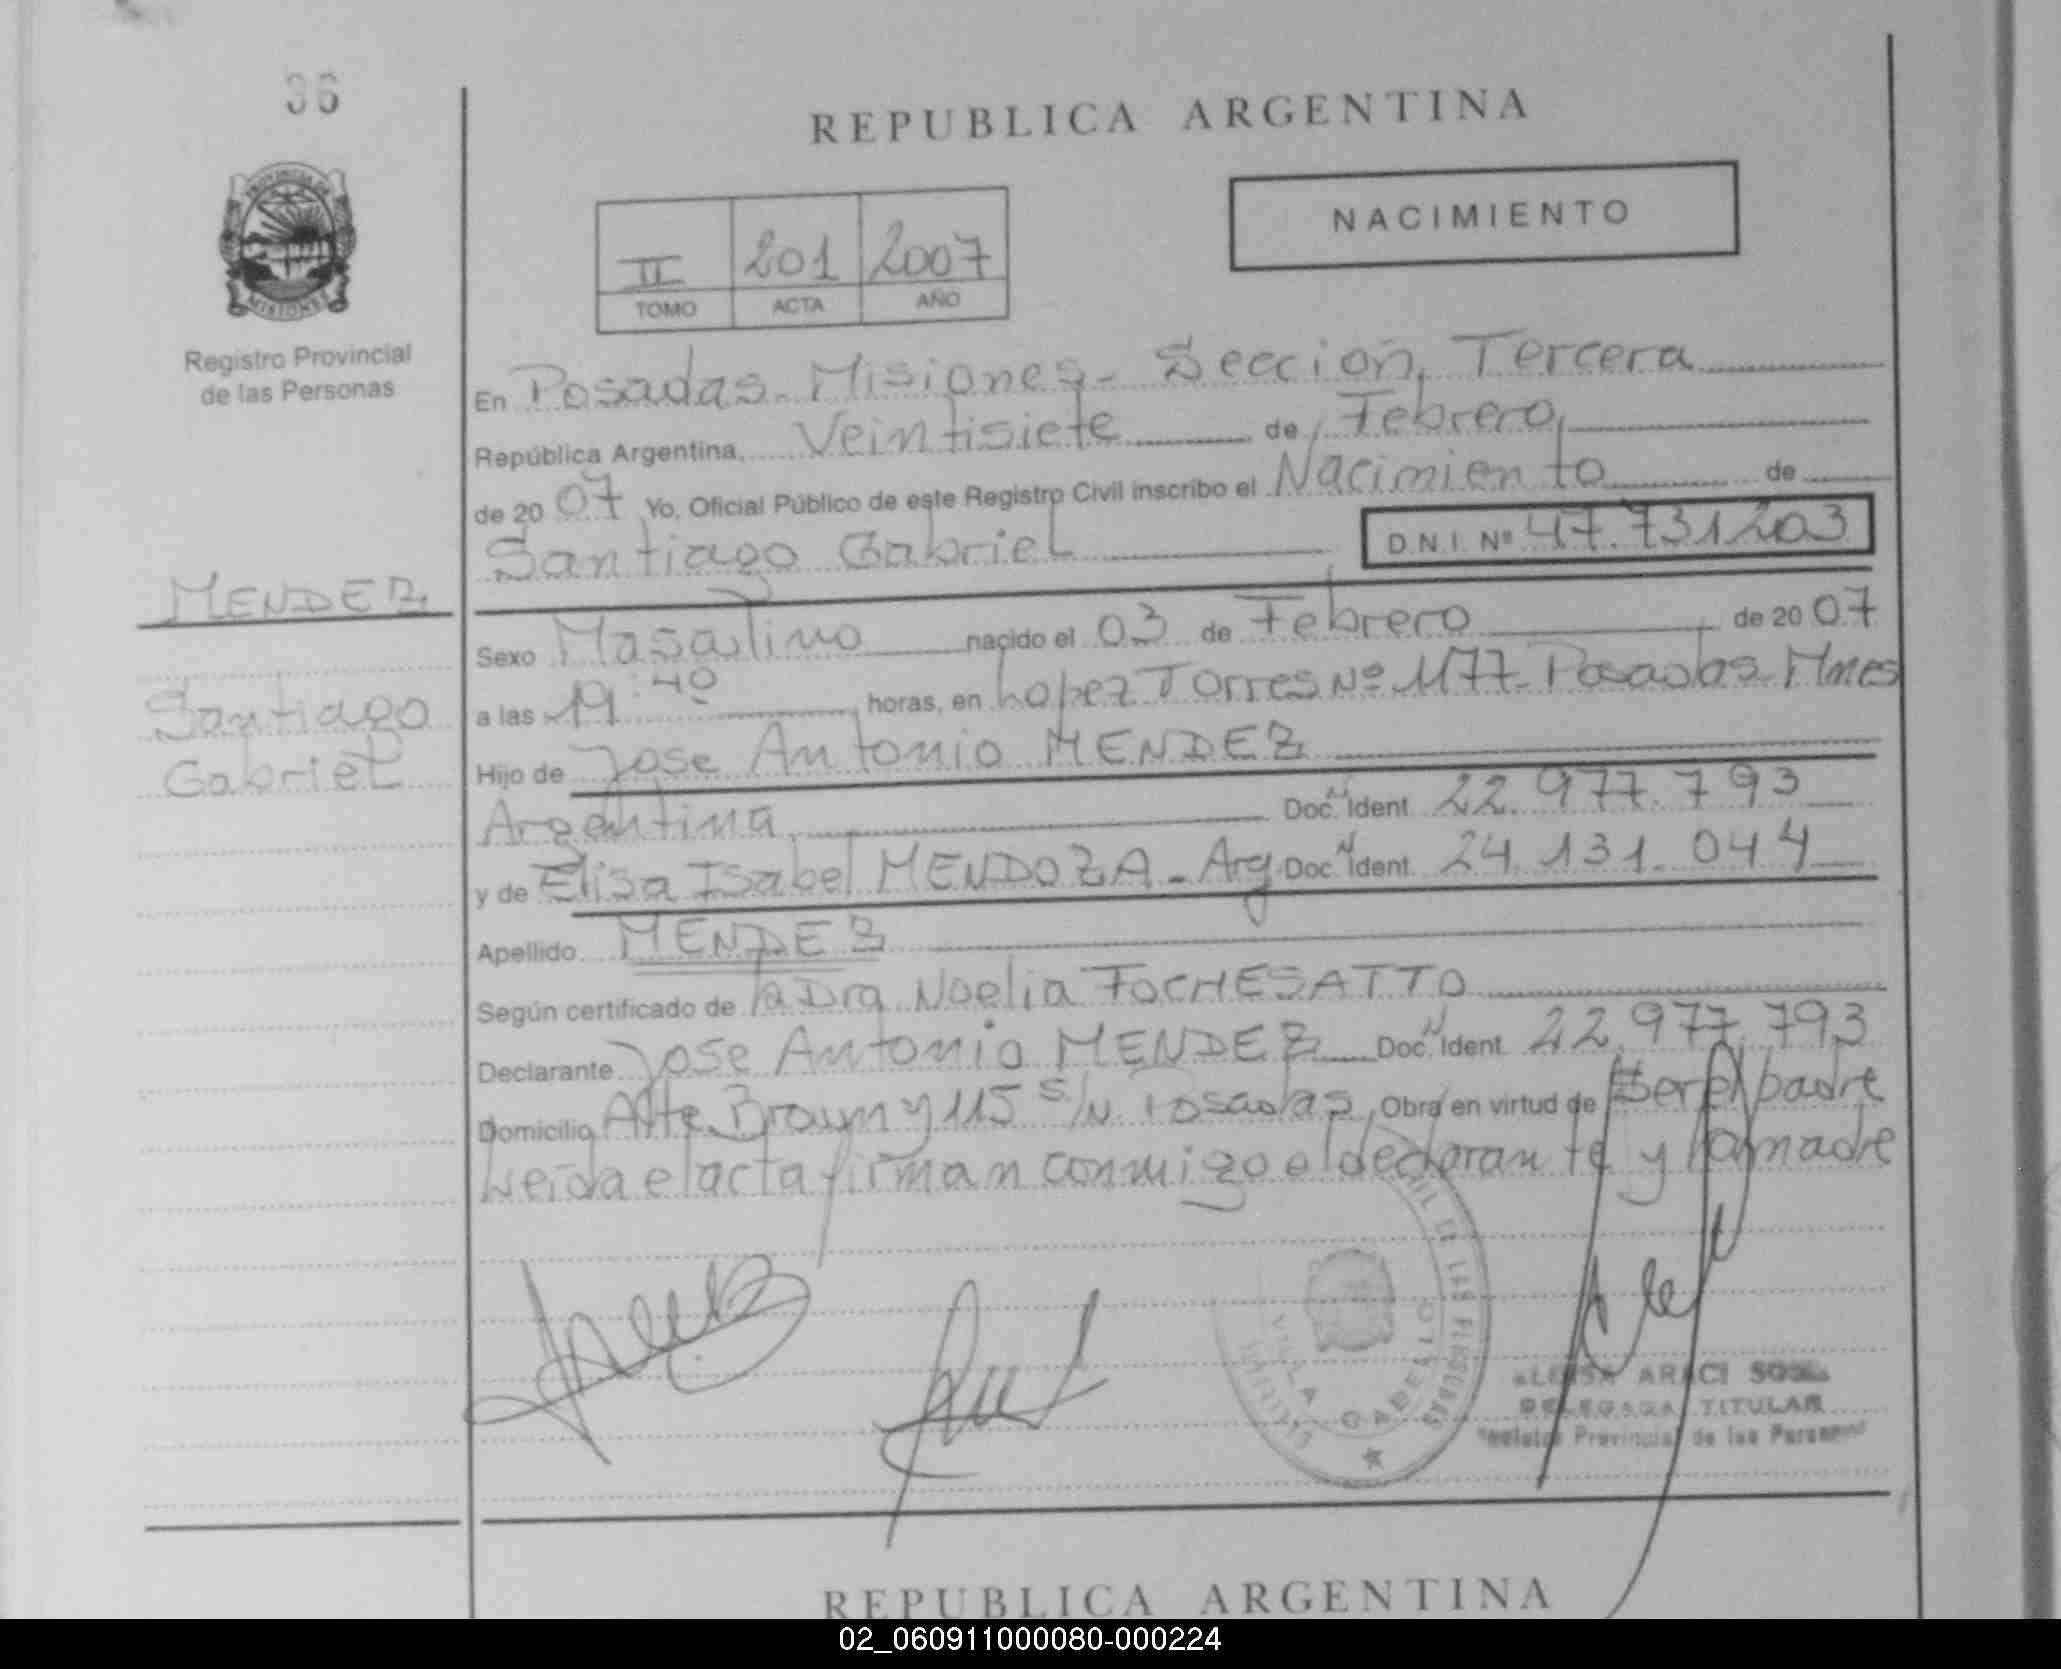 36
REPUBLICA ARGENTINA
PROVINCIA DE
MISIONES
Registro Provincial
de las Personas
II 201 2007
TOMO ACTA AÑO
NACIMIENTO
En Posadas - Misiones - Sección Tercera
República Argentina, Veintisiete de Febrero
de 20 07 Yo, Oficial Público de este Registro Civil inscribo el Nacimiento de
Santiago Gabriel D.N.I. Nº 47.731203
MENDEZ
Santiago
Gabriel
Sexo Masculino nacido el 03 de Febrero de 20 07
a las 19:40 horas, en Lopez Torres Nº 1177 - Posadas - Mnes
Hijo de Jose Antonio MENDEZ
Argentina Doc. Ident. 22.977.793
y de Elisa Isabel MENDOZA - Arg Doc. Ident. 24.131.044
Apellido MENDEZ
Según certificado de la Dra Noelia FOCHESATTO
Declarante Jose Antonio MENDEZ Doc. Ident. 22.977.793
Domicilio Alte Brown y 115 S/N Posadas, Obra en virtud de ser el padre
Leida el acta firman conmigo el declarante y la madre
VILLA CABELLO
ARACI
DELEGADA TITULAR
Provincial de las Personas
REPUBLICA ARGENTINA
02_060911000080-000224